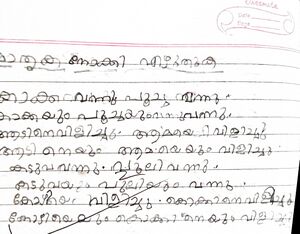 classmate
Date
Page
മാതൃക നോക്കി എഴുതുക
കാക്ക വന്നു പൂച്ച വന്നു.
കാക്കയും പൂച്ചയും വന്നു.
ആടിനെ വിളിച്ചു. ആമയെ വിളിച്ചു
ആടിനെയും ആമയെയും വിളിച്ചു
കടുവ വന്നു. പുലി വന്നു.
കടുവയും പുലിയും വന്നു.
കോഴിയെ വിളിച്ചു. കൊക്കിനെ വിളിച്ചു
കോഴിയെയും കൊക്കിനെയും വിളിച്ചു